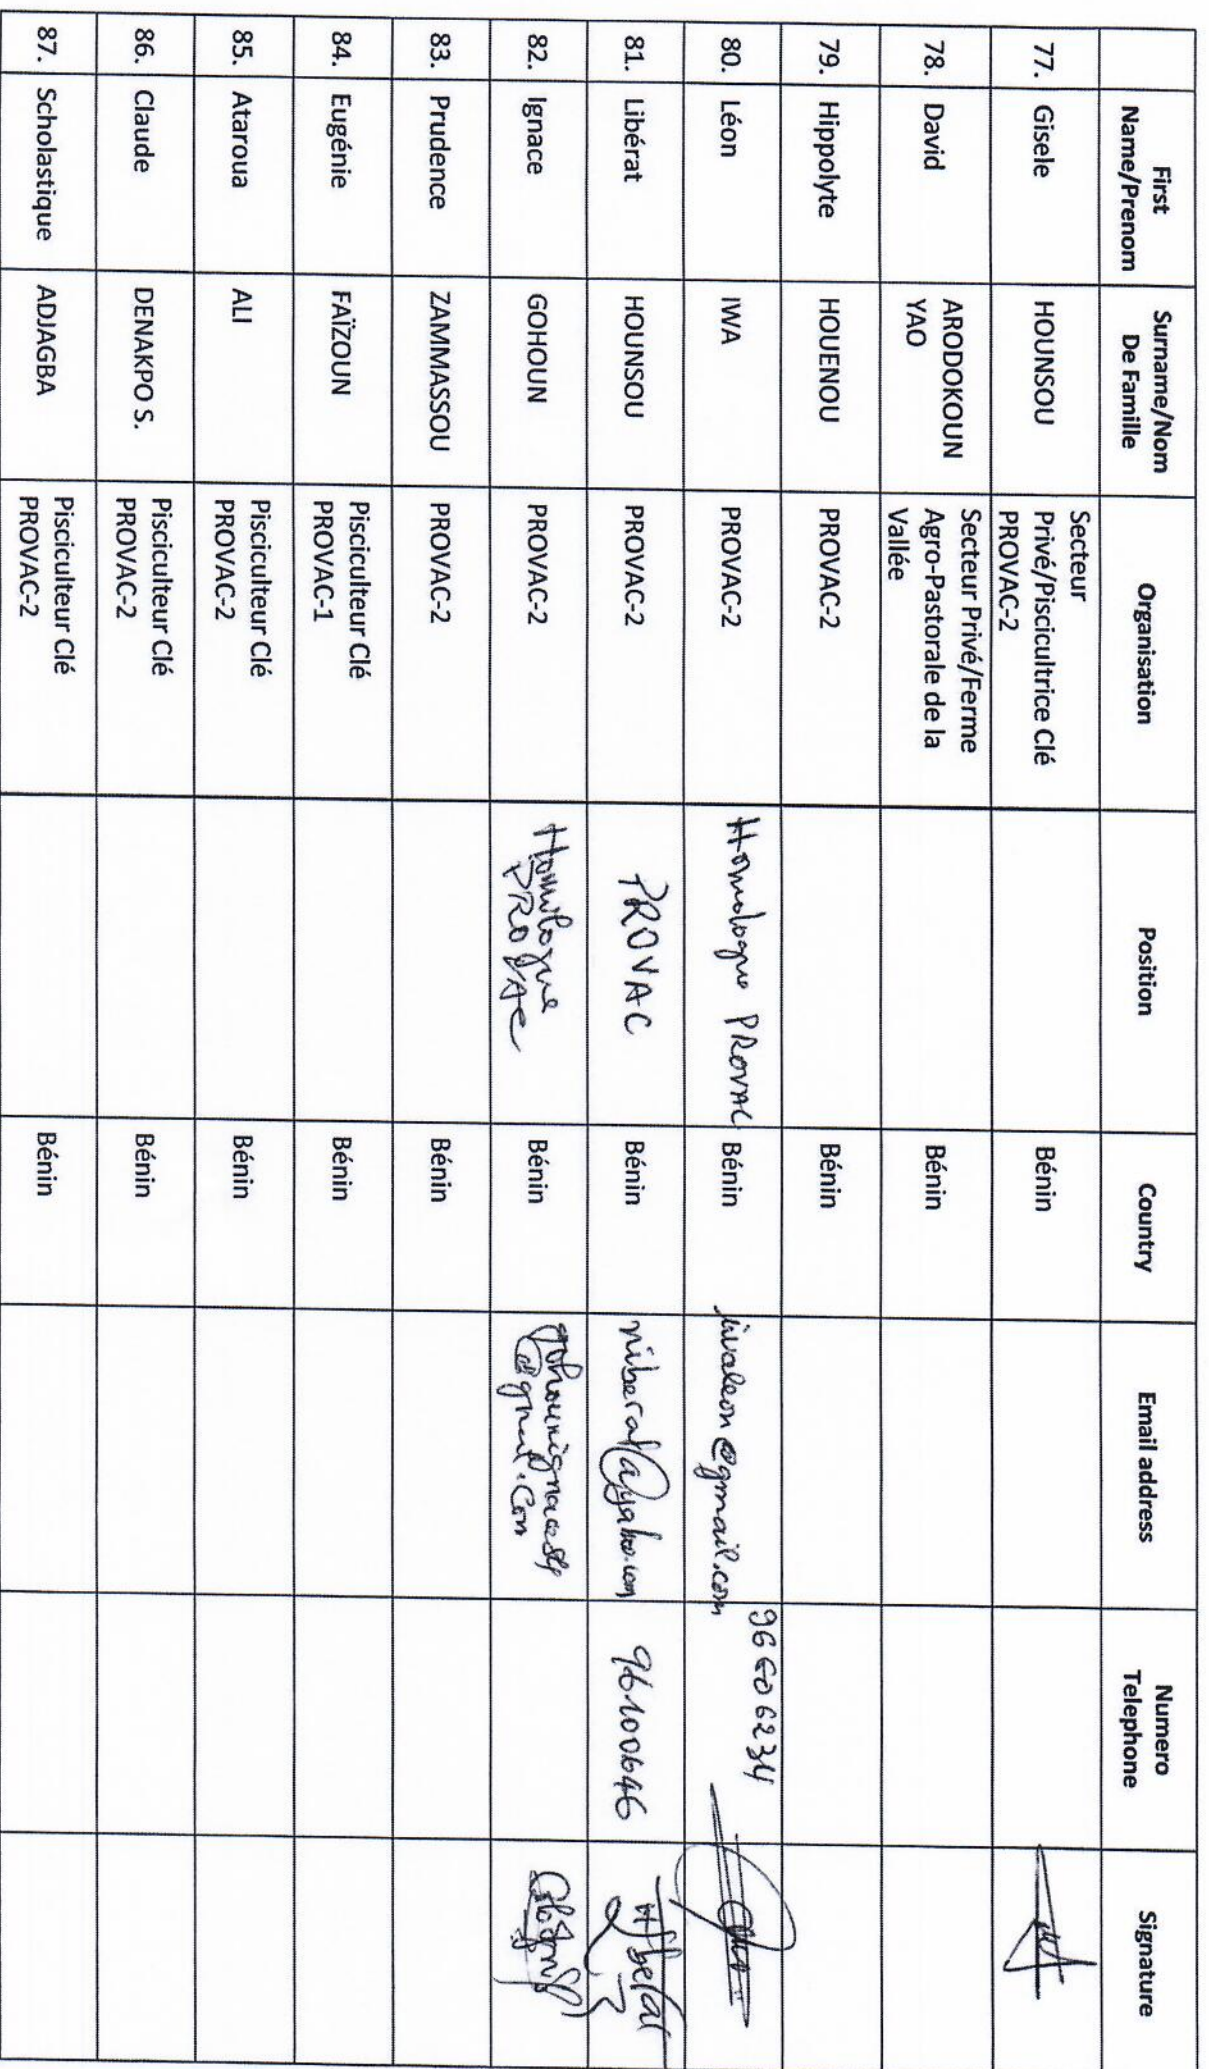 First Name/Prenom Surname/Nom De Famille Organisation Position Country Email address Numero Telephone Signature
77. Gisele HOUNSOU Secteur Privé/Piscicultrice Clé PROVAC-2 Bénin
78. David ARODOKOUN YAO Secteur Privé/Ferme Agro-Pastorale de la Vallée Bénin
79. Hippolyte HOUENOU PROVAC-2 Bénin
80. Léon IWA PROVAC-2 Homologue PROVAC Bénin iwaleon@gmail.com 96606234
81. Libérat HOUNSOU PROVAC-2 PROVAC Bénin niberat@yahoo.com 96100646
82. Ignace GOHOUN PROVAC-2 Homologue PROVAC Bénin
83. Prudence ZAMMASSOU PROVAC-2 Bénin
84. Eugénie FAÏZOUN Pisciculteur Clé PROVAC-1 Bénin
85. Ataroua ALI Pisciculteur Clé PROVAC-2 Bénin
86. Claude DENAKPO S. Pisciculteur Clé PROVAC-2 Bénin
87. Scholastique ADJAGBA Pisciculteur Clé PROVAC-2 Bénin